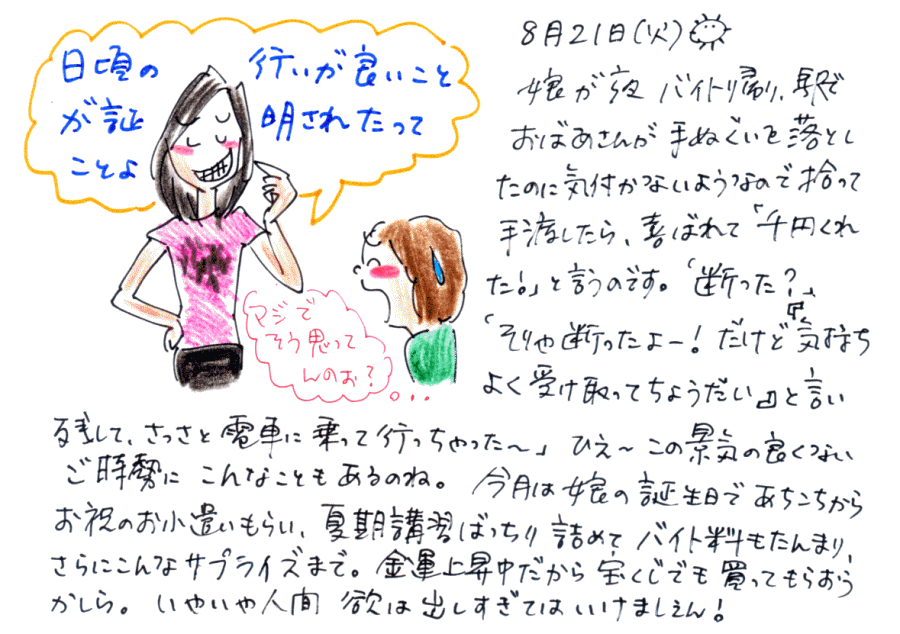 日頃の行いが良いこと
が証明されたって
ことよ
マジで
そう思って
んのお?
8月21日(火)
娘が夜バイトリ帰り、駅で
おばあさんが手ぬぐいを落とし
たのに気付かないようなので拾って
手渡したら、喜ばれて「千円くれ
た!」と言うのです。「断った?」
「そりゃ断ったよー!だけど『気持ち
よく受け取ってちょうだい』と言い
残して、さっさと電車に乗って行っちゃった〜」ひえ〜この景気の良くない
ご時勢にこんなこともあるのね。今月は娘の誕生日であちこちから
お祝のお小遣いもらい、夏期講習ばっちり詰めてバイト料もたんまり、
さらにこんなサプライズまで。金運上昇中だから宝くじでも買ってもらおう
かしら。いやいや人間欲は出しすぎてはいけましぇん!